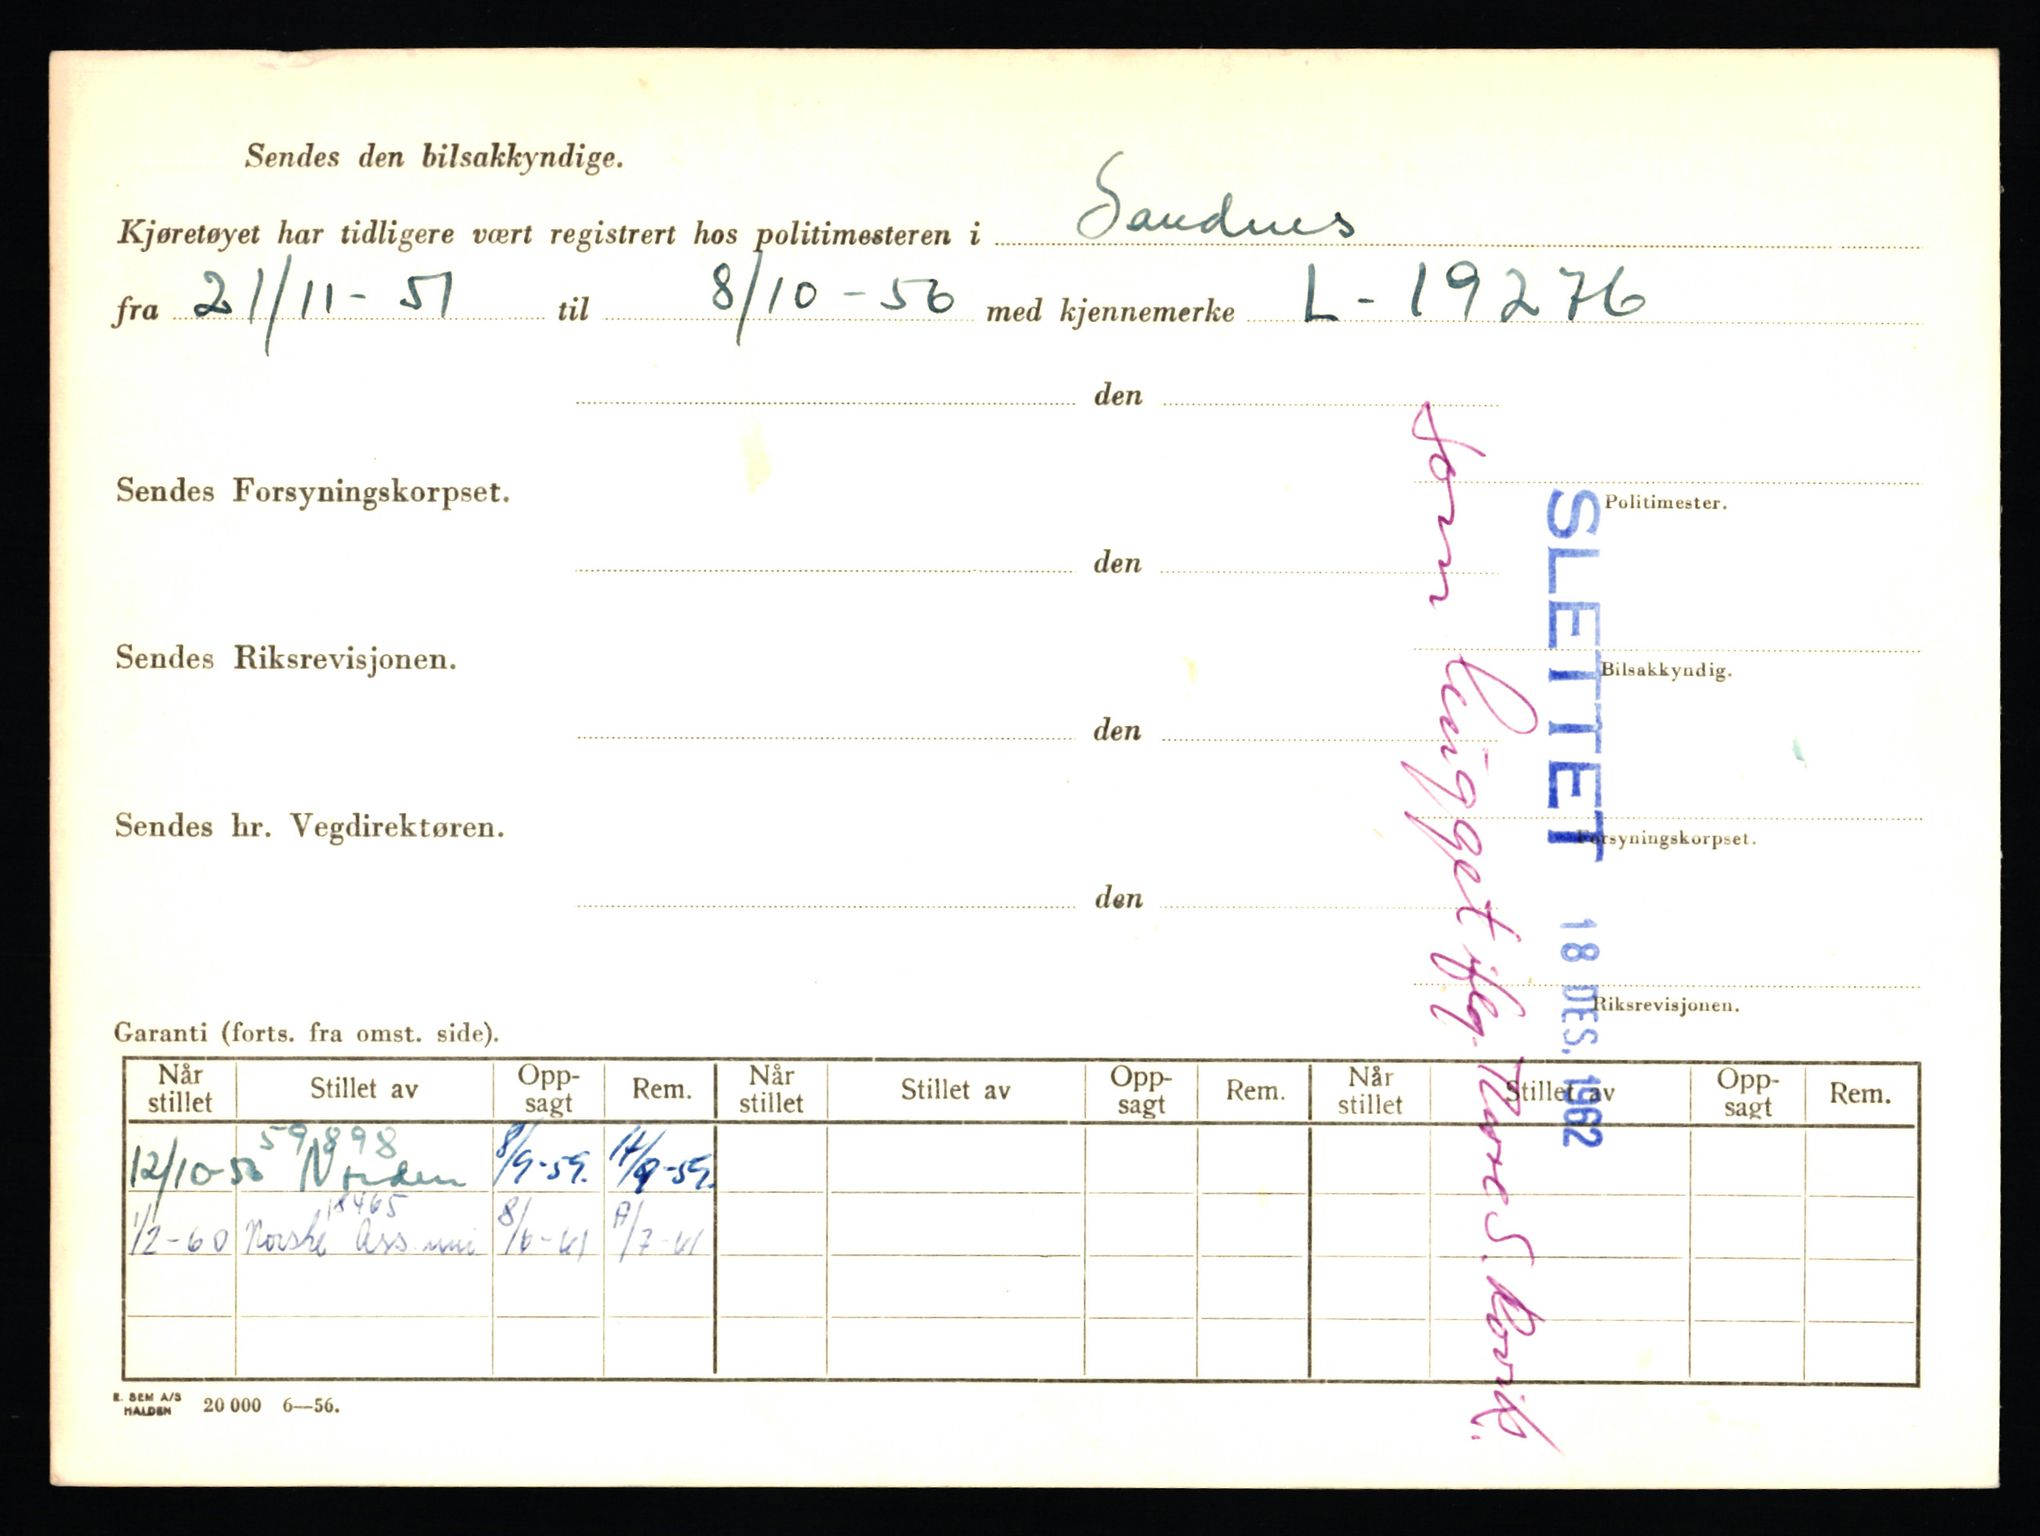 Sendes den bilsakkyndige.
Kjøretøyet har tidligere vært registrert hos politimesteren i Sandnes
fra 21/11-51 til 8/10-56 med kjennemerke L-19276
den
Politimester.
Sendes Forsyningskorpset.
den
Bilsakkyndig.
Sendes Riksrevisjonen.
den
Forsyningskorpset.
Sendes hr. Vegdirektøren.
den
Riksrevisjonen.
som
SLETTET 18 DES. 1962
Garanti (forts. fra omst. side).
Når stillet Stillet av Opp-sagt Rem. Når stillet Stillet av Opp-sagt Rem. Når stillet Stillet av Opp-sagt Rem.
59898
12/10-56 Norden 8/9-59. 14/9-59.
18465
1/2-60 Norske Ass. uni 8/6-61 /7-61
E. SEM A/S
HALDEN 20 000 6—56.